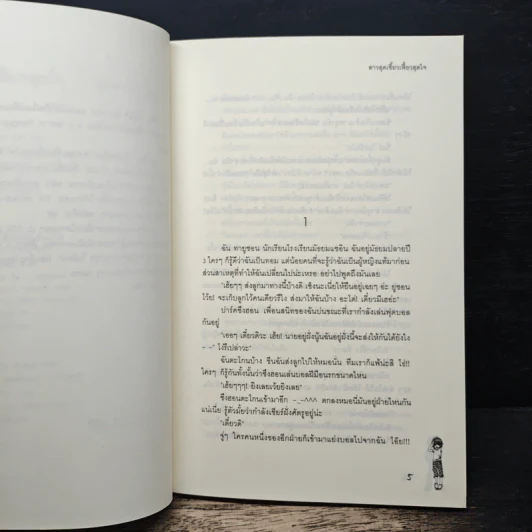 สาวสุดเซี้ยวเฟี้ยวสุดใจ
1
ฉัน ทายูซอน นักเรียนโรงเรียนมัธยมแชอิน ฉันอยู่มัธยมปลายปี
3 ใครๆ ก็รู้ดีว่าฉันเป็นทอม แต่น้อยคนที่จะรู้ว่าฉันเป็นผู้หญิงแท้มาก่อน
ส่วนสาเหตุที่ทำให้ฉันเปลี่ยนไปน่ะเหรอ อย่าไปพูดถึงมันเลย
"เฮ้ยๆๆ ส่งลูกมาทางนี้บ้างดิ เชิงนะเนี่ยให้ยืนอยู่เลยๆ อ่ะ ยูซอน
โว้ย! จะเก็บลูกไว้คนเดียวรึไง ส่งมาให้ฉันบ้าง อะโด่! เดี๋ยวมีเฮอ่ะ"
ปาร์คซึงฮอน เพื่อนสนิทของฉันบ่นขณะที่เรากำลังเล่นฟุตบอล
กันอยู่
"เออๆ เดี๋ยวดิวะ เฮ้ย! นายอยู่ฝั่งนู้นฉันอยู่ฝั่งนี้จะส่งให้กันได้ยังไง
- -" ไงรึเปล่าวะ"
ฉันตะโกนบ้าง ขืนฉันส่งลูกไปให้หมอนั่น ทีมเราก็แพ้น่ะสิ ใช่!!
ใครๆ ก็รู้กันทั้งนั้นว่าซึงฮอนเล่นบอลฝีมือนรกขนาดไหน
"เฮ้ยๆๆๆ! ยิงเลยเว้ยยิงเลย"
ซึงฮอนตะโกนเข้ามาอีก -_-^^^ ตกลงหมอนี่มันอยู่ฝ่ายไหนกัน
แน่เนี่ย รู้ตัวมั้ยว่ากำลังเชียร์ฝั่งศัตรูอยู่น่ะ
"เดี๋ยวดิ"
จู่ๆ ใครคนหนึ่งของอีกฝ่ายก็เข้ามาแย่งบอลไปจากฉัน โอ๊ย!!!
5